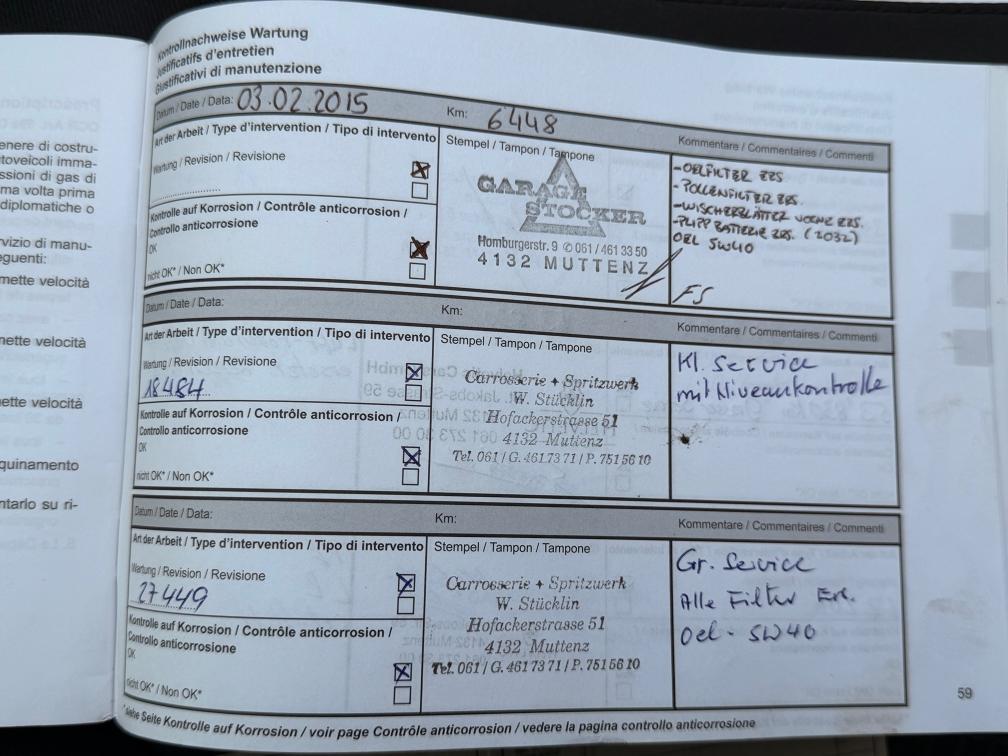 enere di costru-
toveicoli imma-
ssioni di gas di
ma volta prima
diplomatiche o
vizio di manu-
eguenti:
mette velocità
nette velocità
ette velocità
quinamento
ntarlo su ri-
Kontrollnachweise Wartung
Justificatifs d'entretien
Giustificativi di manutenzione
Datum / Date / Data: 03.02.2015 Km: 6448
Art der Arbeit / Type d'intervention / Tipo di intervento
Wartung / Revision / Revisione
Kontrolle auf Korrosion / Contrôle anticorrosion /
Controllo anticorrosione
OK
nicht OK* / Non OK*
Stempel / Tampon / Tampone
GARAGE
STOCKER
Homburgerstr. 9 ✆ 061 / 461 33 50
4132 MUTTENZ
Kommentare / Commentaires / Commenti
- OELFILTER ERS
- POLLENFILTER ERS.
- WISCHERBLÄTTER VORNE ERS.
- PLIPP BATTERIE ERS. (2032)
OEL 5W40
FS
Datum / Date / Data: Km:
Art der Arbeit / Type d'intervention / Tipo di intervento
Wartung / Revision / Revisione
18484
Kontrolle auf Korrosion / Contrôle anticorrosion /
Controllo anticorrosione
OK
nicht OK* / Non OK*
Stempel / Tampon / Tampone
Carrosserie + Spritzwerk
W. Stücklin
Hofackerstrasse 51
4132 Muttenz
Tel. 061 / G. 461 73 71 / P. 751 56 10
Kommentare / Commentaires / Commenti
Kl. Service
mit Niveaukontrolle
Datum / Date / Data: Km:
Art der Arbeit / Type d'intervention / Tipo di intervento
Wartung / Revision / Revisione
27449
Kontrolle auf Korrosion / Contrôle anticorrosion /
Controllo anticorrosione
OK
nicht OK* / Non OK*
Stempel / Tampon / Tampone
Carrosserie + Spritzwerk
W. Stücklin
Hofackerstrasse 51
4132 Muttenz
Tel. 061 / G. 461 73 71 / P. 751 56 10
Kommentare / Commentaires / Commenti
Gr. Service
Alle Filter Ers.
Oel - 5W40
*siehe Seite Kontrolle auf Korrosion / voir page Contrôle anticorrosion / vedere la pagina controllo anticorrosione
59